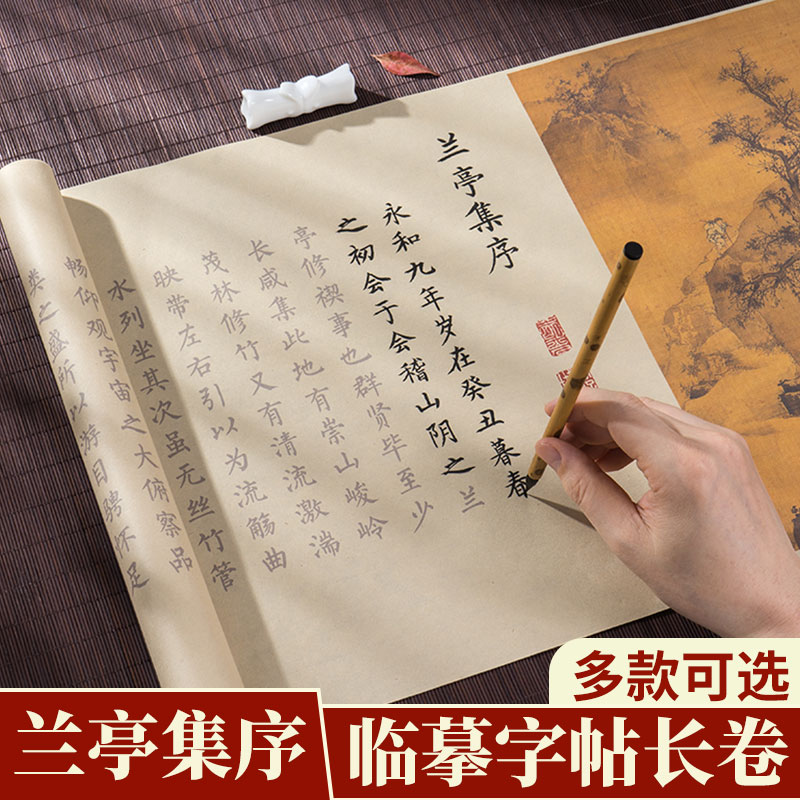 兰亭集序
永和九年岁在癸丑暮春
之初会于会稽山阴之兰
亭修禊事也群贤毕至少
长咸集此地有崇山峻岭
茂林修竹又有清流激湍
映带左右引以为流觞曲
水列坐其次虽无丝竹管
畅仰观宇宙之大俯察品
类之盛所以游目骋怀足
多款可选
兰亭集序
临摹字帖长卷